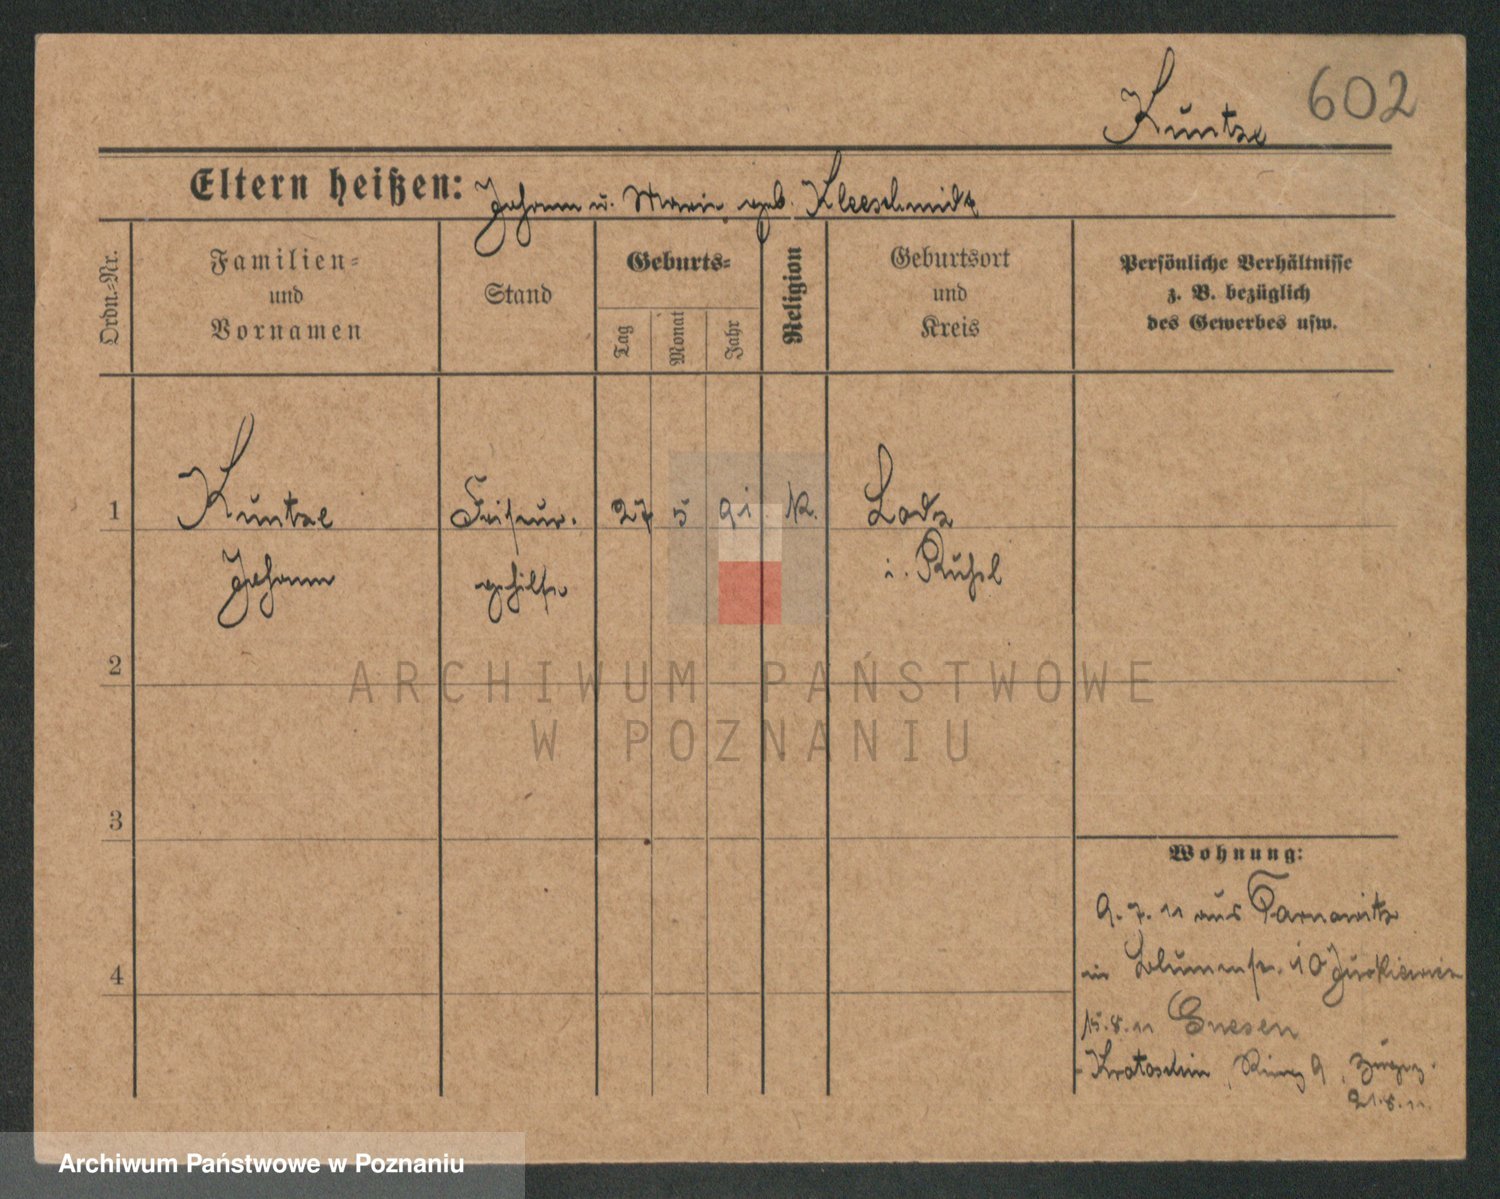 602
Kuntze
Eltern heißen: Johann u. Marie geb. Kleeschmidt
Ordn.-Nr.
Familien-
und
Vornamen
Stand
Geburts-
Tag
Monat
Jahr
Religion
Geburtsort
und
Kreis
Persönliche Verhältnisse
z. B. bezüglich
des Gewerbes usw.
1 Kuntze Friseur- 27 5 91 K. Lodz
Johann gehilfe i. Rußl
2
3
4
Wohnung:
9.7.11 aus Tarnowitz
in Blumenstr. 10
15.8.11 Gnesen
Krotoschin Ring 9
21.8.11.
ARCHIWUM PAŃSTWOWE
W POZNANIU
Archiwum Państwowe w Poznaniu